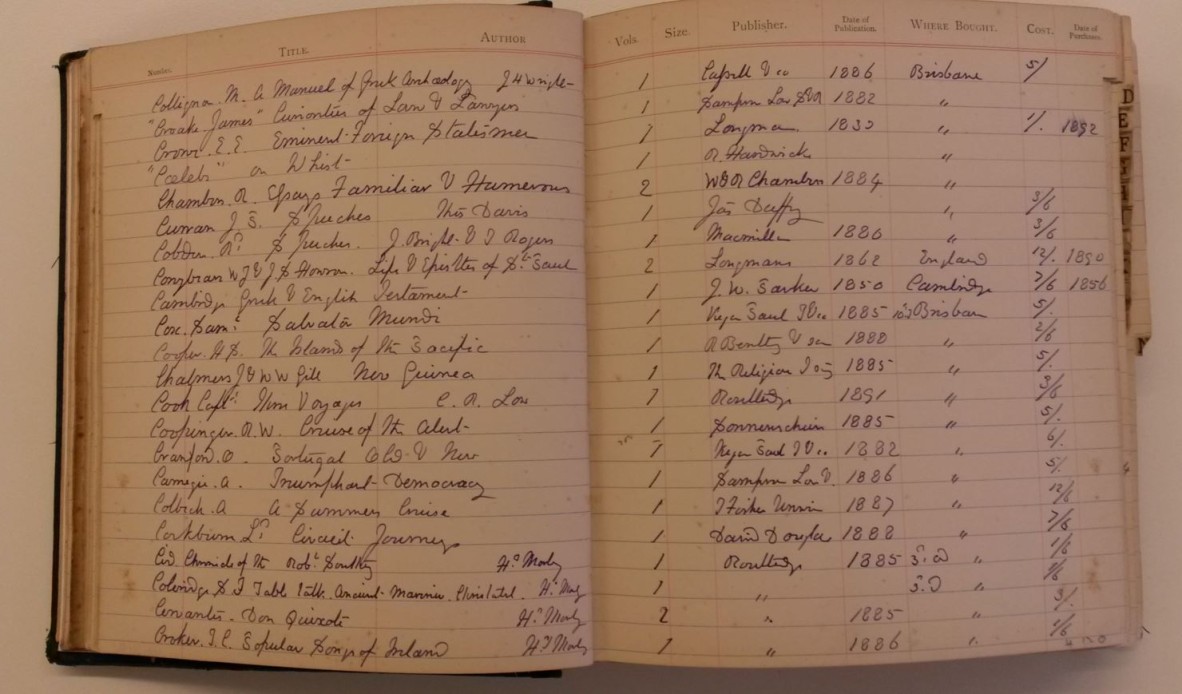 Number. TITLE. AUTHOR Vols. Size. Publisher. Date of Publication. WHERE BOUGHT. COST. Date of Purchase.
Collignon. M. A Manual of Greek Archaeology J H Wright 1 Cassell & co 1886 Brisbane 5/
"Croake James" Curiosities of Law & Lawyers 1 Sampson Low 1882 "
Crowe. E. E. Eminent Foreign Statesmen 1 Longman 1830 " 1/. 1892
"Cœlebs" on Whist 1 R. Hardwicke "
Chambers. R. Essays Familiar & Humerous 2 W & R Chambers 1884 "
Curran J. Speeches Thos Davis 1 Jas Duffy " 3/6
Cobden. Rd Speeches. J. Bright & T Rogers 1 Macmillan 1880 " 3/6
Conybeare W J & J S Howson. Life & Epistles of St Paul 2 Longmans 1862 England 12/. 1890
Cambridge Greek & English Testament 1 J. W. Parker 1850 Cambridge 7/6 1856
Cox. Saml Salvator Mundi 1 Kegan Paul T & co 1885 Brisbane 5/.
Cooper. H S. The Islands of the Pacific 1 R Bentley & son 1888 " 2/6
Chalmers J & W W Gill New Guinea 1 The Religious 1885 " 5/.
Cook Captn Three Voyages C. R. Low 1 Routledge 1891 " 3/6
Coppinger. R. W. Cruise of the Alert 1 Sonnenschein 1885 " 5/.
Crawford. O. Portugal Old & New 1 Kegan Paul T & co 1882 " 6/.
Carnegie. A. Triumphant Democracy 1 Sampson Low 1886 " 5/.
Colbeck. A A Summers Cruise 1 T Fisher Unwin 1887 " 12/6
Cockburn Ld Circuit Journeys 1 David Douglas 1888 " 7/6
Cid. Chronicle of the Robt Southey Hy Morley 1 Routledge 1885 " 1/6
Coleridge S T Table Talk. Ancient Mariner. Christabel. Hy Morley 1 " "
Cervantes. Don Quixote Hy Morley 2 " 1885 " 3/.
Croker. T. C. Popular Songs of Ireland Hy Morley 1 " 1886 " 1/6
D
E
F